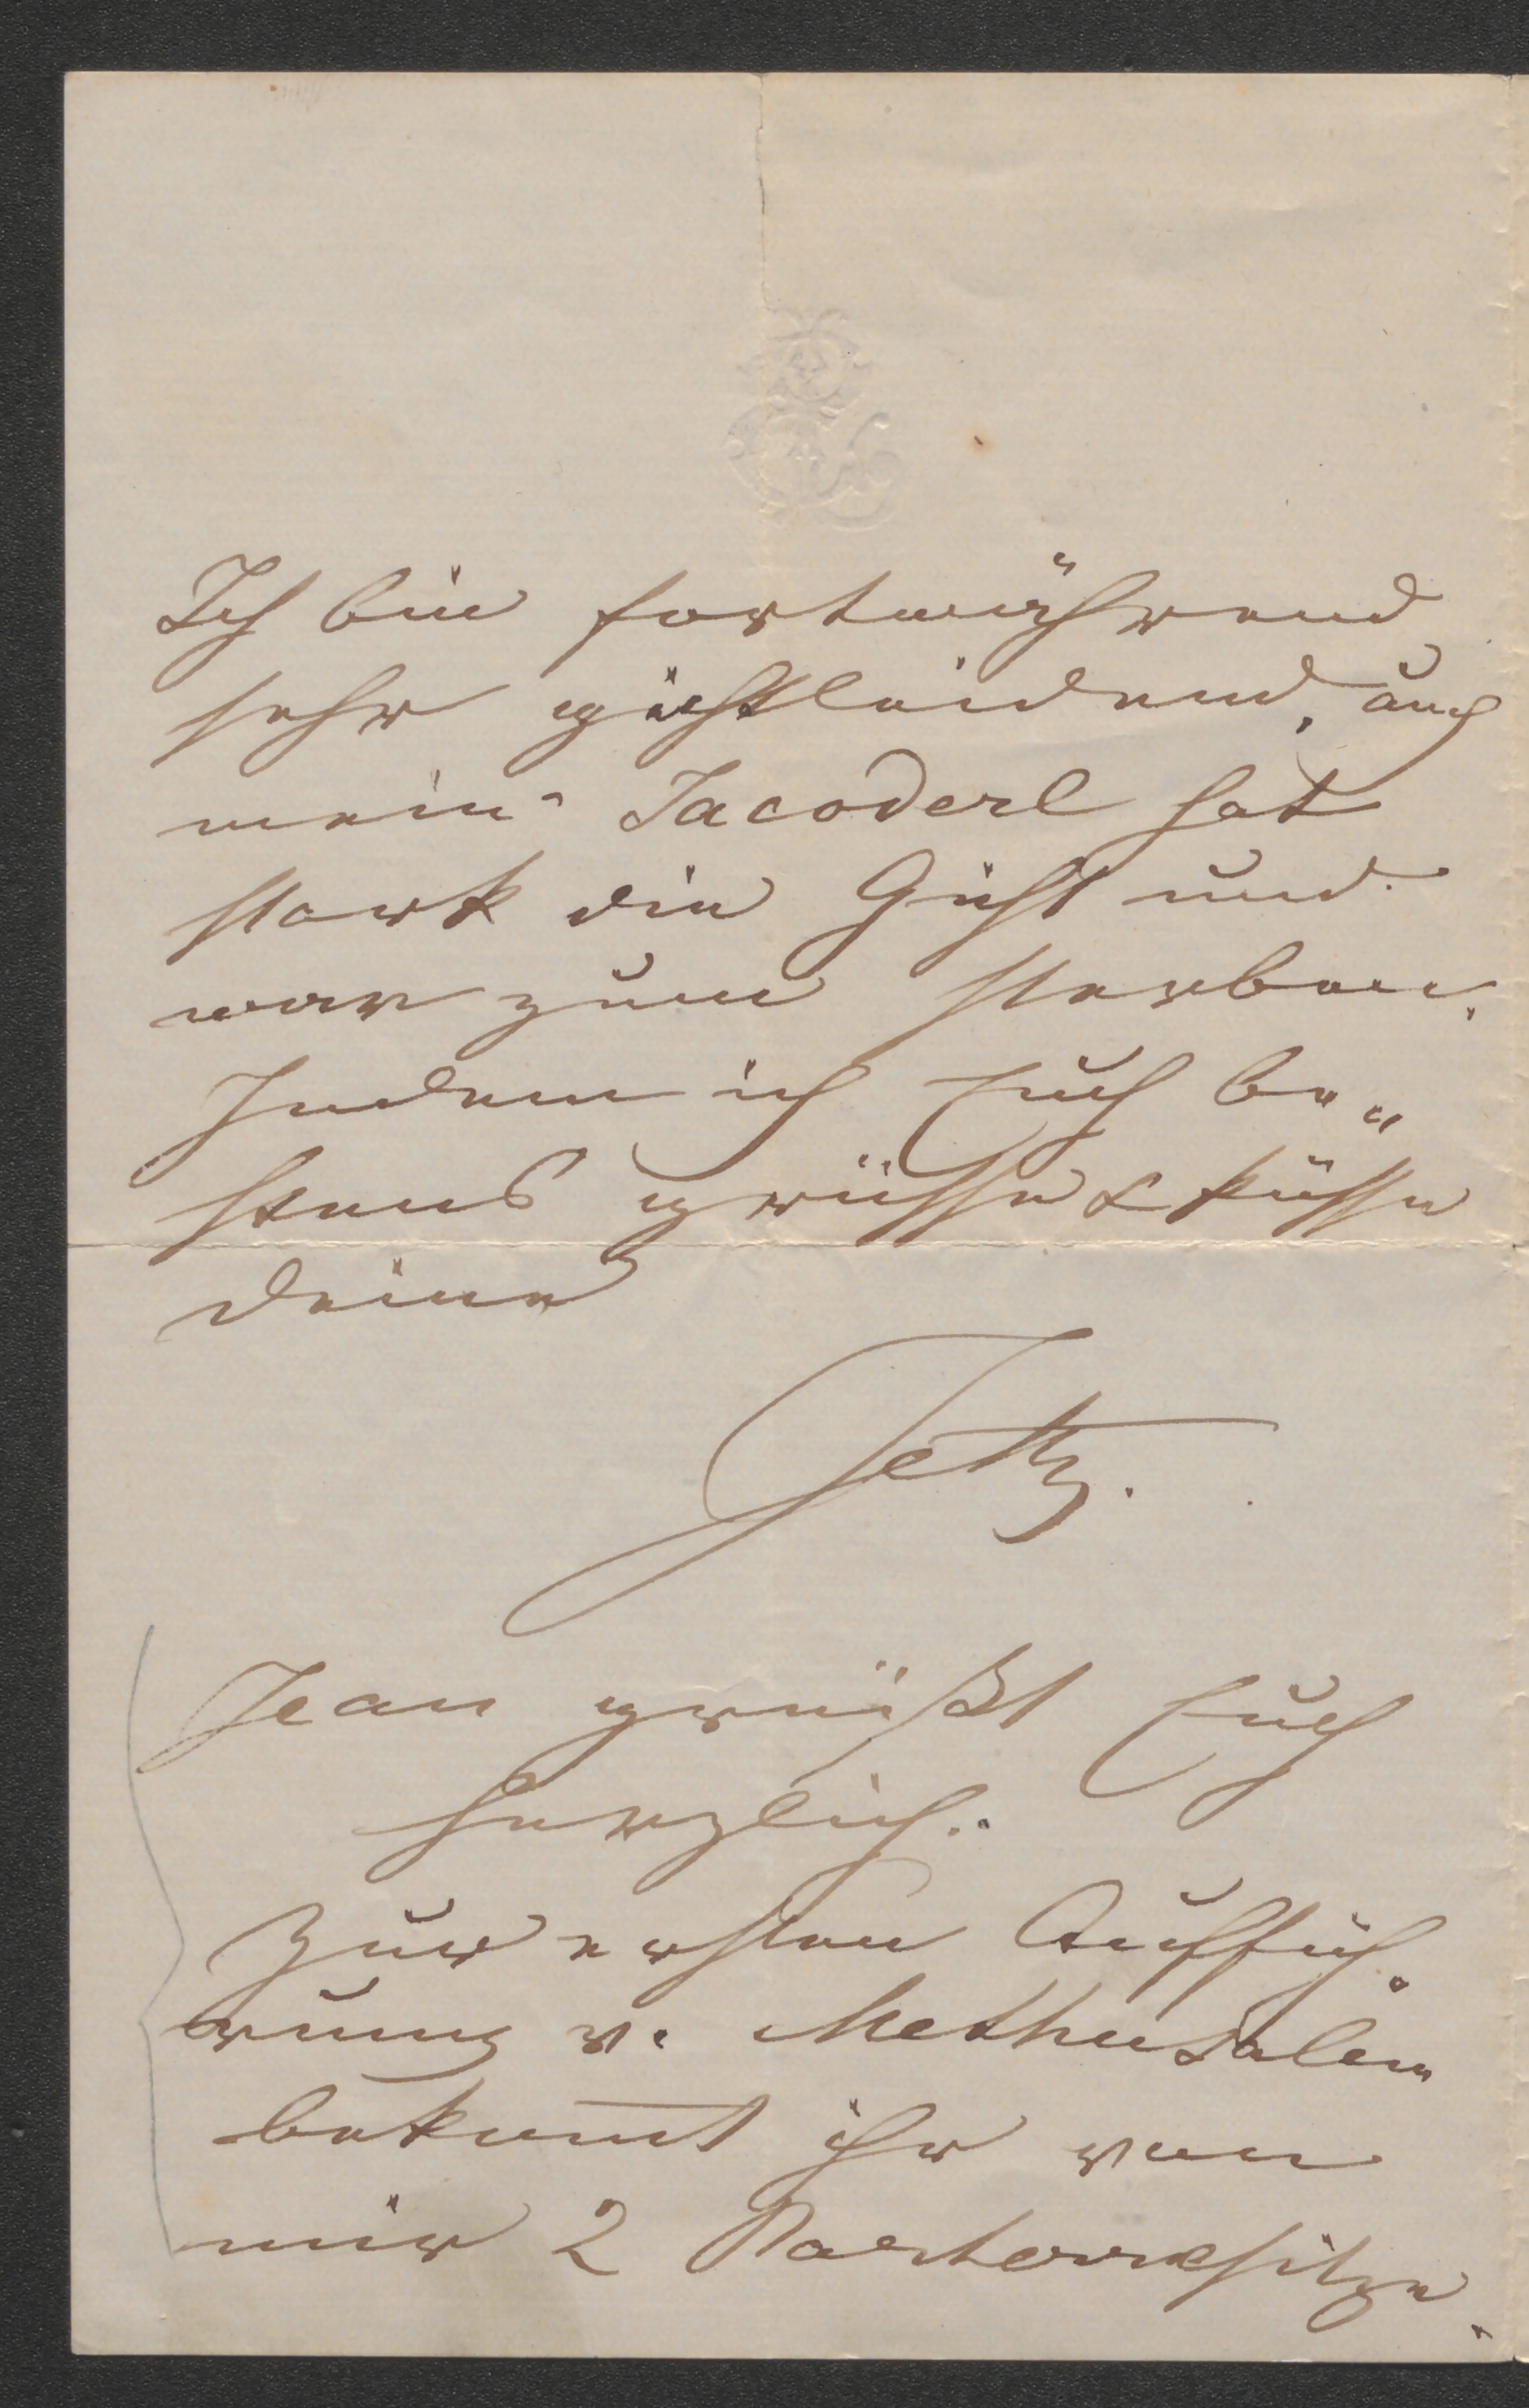 Ich bin fortwährend
sehr gichtleidend, auch
mein Jacoderl hat
stark die Gicht und
war zum sterben.
Indem ich Euch be„
stens grüsse & küsse
deine
Jetty.
Jean grüßt Euch
herzlich..
Zur ersten Auffüh„
rung v. Methusalem
bekom̅t ihr von
mir 2 Parterresitze.